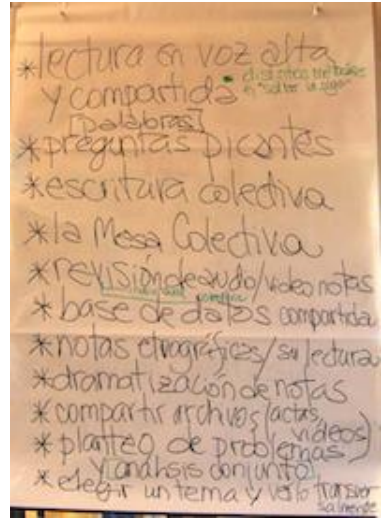 *lectura en voz alta
y compartida
[palabras]
*preguntas picantes
*escritura colectiva
*la Mesa Colectiva
*revisión de audio/video notas
*base de datos compartida
*notas etnográficas/su lectura
*dramatización de notas
*compartir archivos (actas,
videos)
*planteo de problemas
y análisis conjunto
*elegir un tema y verlo transver
salmente